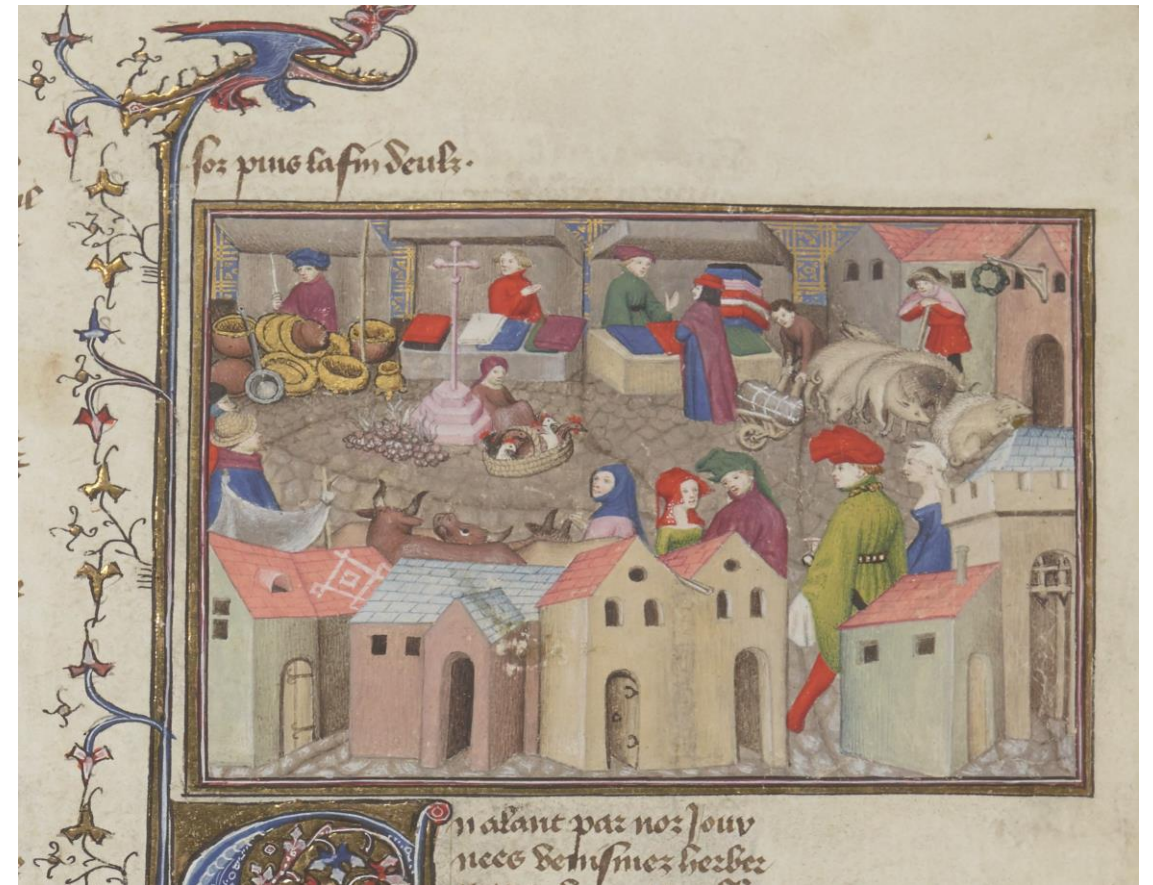 sor puis la fin deulz.
n alant par noz Jour
nees venismez herber